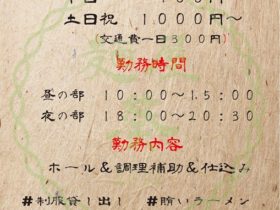 土日祝 1,000円～
(交通費一日300円)
勤務時間
昼の部 10:00〜15:00
夜の部 18:00〜20:30
勤務内容
ホール&調理補助&仕込み
#制服貸し出し #賄いラーメン